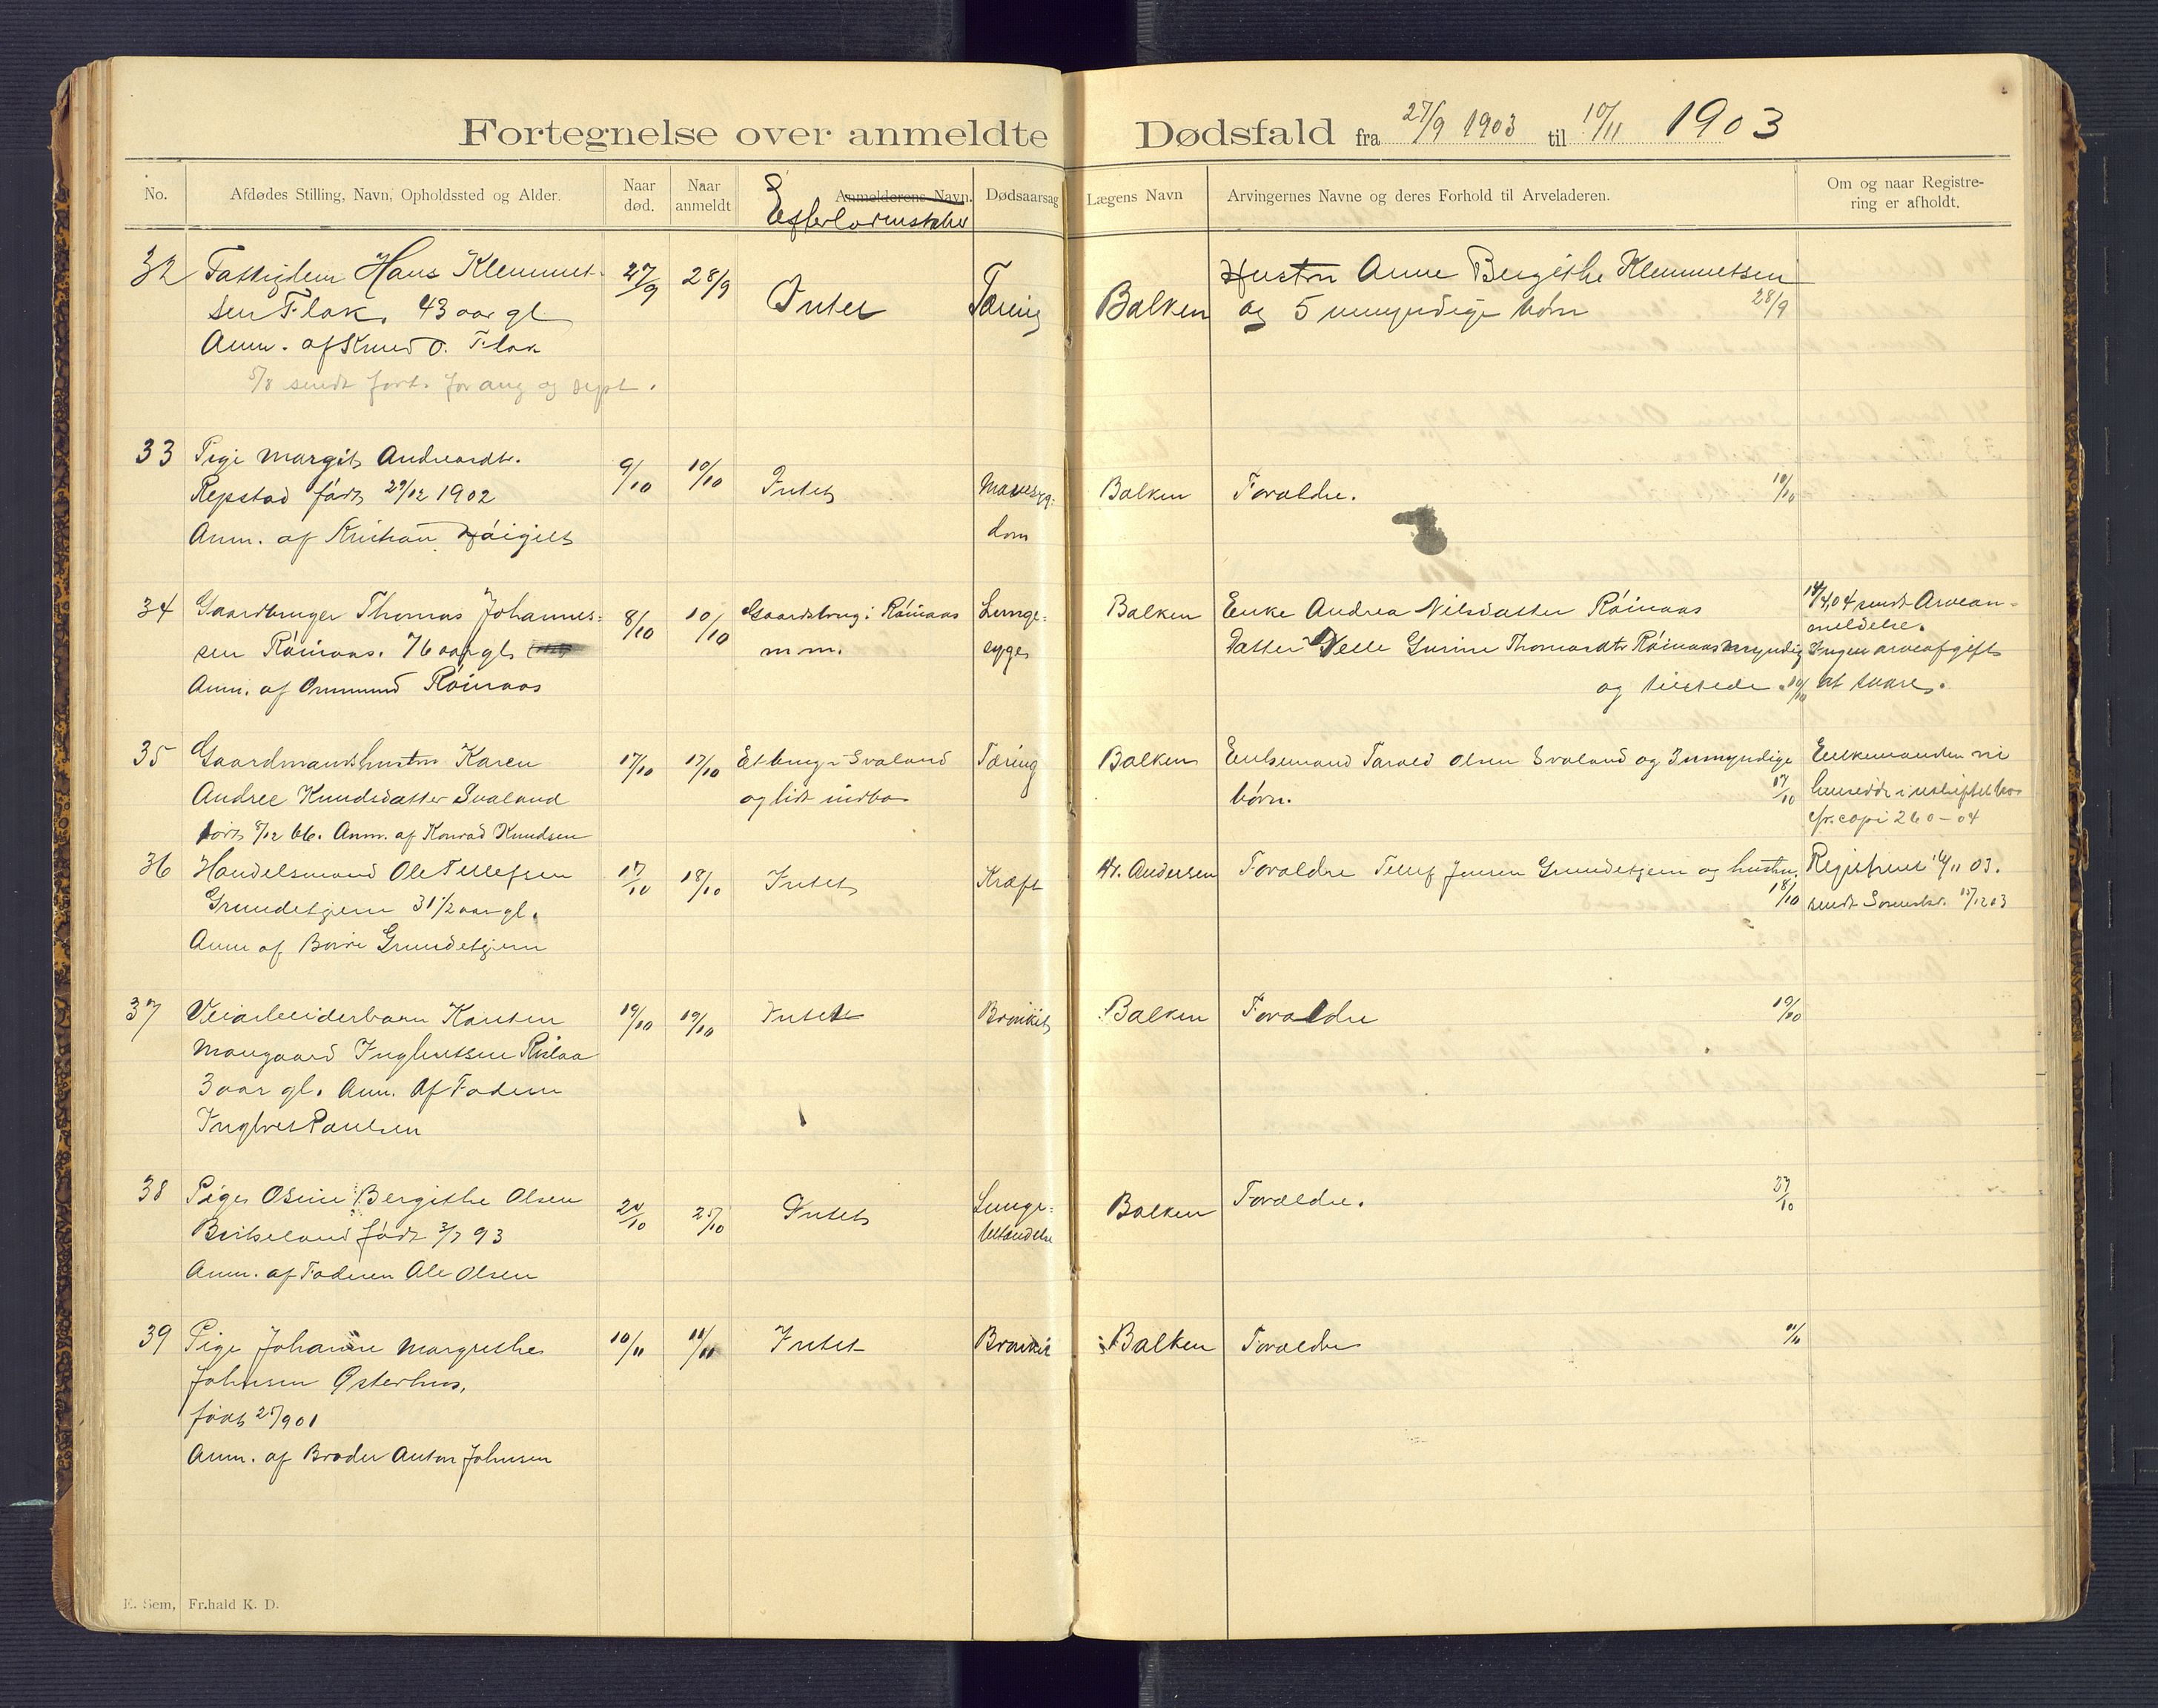 Fortegnelse over anmeldte Dødsfald fra 27/9 1903 til 10/11 1903
No. Afdødes Stilling, Navn, Opholdssted og Alder. Naar død. Naar anmeldt Anmelderens Navn. Efterladenskaber Dødsaarsag Lægens Navn Arvingernes Navne og deres Forhold til Arveladeren. Om og naar Registrering er afholdt.
32 Fattiglem Hans Klemmet- 27/9 28/9 Intet Tæring Balken Hustru Anne Bergithe Klemmetsen
sen Flak. 43 aar gl og 5 umyndige børn 28/9
Anm. af Knud O. Flak
5/8 sendt fort. for ang og
33 Pige Margit Andreasdtr. 9/10 10/10 Intet Mavesyg- Balken Forældre. 10/10
Repstad født 29/12 1902 dom
Anm. af Kristian
34 Gaardbruger Thomas Johannes- 8/10 10/10 Gaardsbrug i Róinaas Lunge- Balken Enke Andrea Nilsdatter Róinaas 14/4 04 sendt Arvean-
sen Róinaas. 76 aar gl m.m. syge Datter Gurine Thomasdtr Róinaas myndig meldelse. Ingen arveafgift
Anm. af Ommund Róinaas og 10/10 at svare.
35 Gaardmandshustru Karen 17/10 17/10 Et brug i Svaland Tæring Balken Enkemand Tarald Olsen Svaland og 3 umyndige Enkemanden
Andree Knudsdatter Svaland og lidt indbo børn. 17/10 hensidde i uskiftet bo
født 5/12 66. Anm. af Konrad Knudsen cfr. copi 260-04
36 Handelsmand Ole Tellefsen 17/10 18/10 Intet Kræft Dr. Andersen Forældre Tellef Jensen Grundetjern og hustru. 18/10 Registreret 16/11 03.
Grundetjern 31 1/2 aar gl. sendt Sorenskr. 15/12 03
Anm af Grundetjern
37 Veiarbeiderbarn Karsten 19/10 19/10 Intet Bronkit Balken Forældre 19/10
Maugaard Inglvetsen Rislaa
3 aar gl. Anm. Af Faderen
Inglvet Paulsen
38 Pige Osine Bergithe Olsen 20/10 25/10 Intet Lunge- Balken Forældre.
Birkeland født 3/7 93 betændelse
Anm. af Faderen Ole Olsen
39 Pige Johanne Margrethe 10/11 11/11 Intet Bronkit Balken Forældre 11/11
Johnsen Østerhus,
født 25/901
Anm. af Broder Anton Johnsen
E. Sem, Fr.hald K. D.